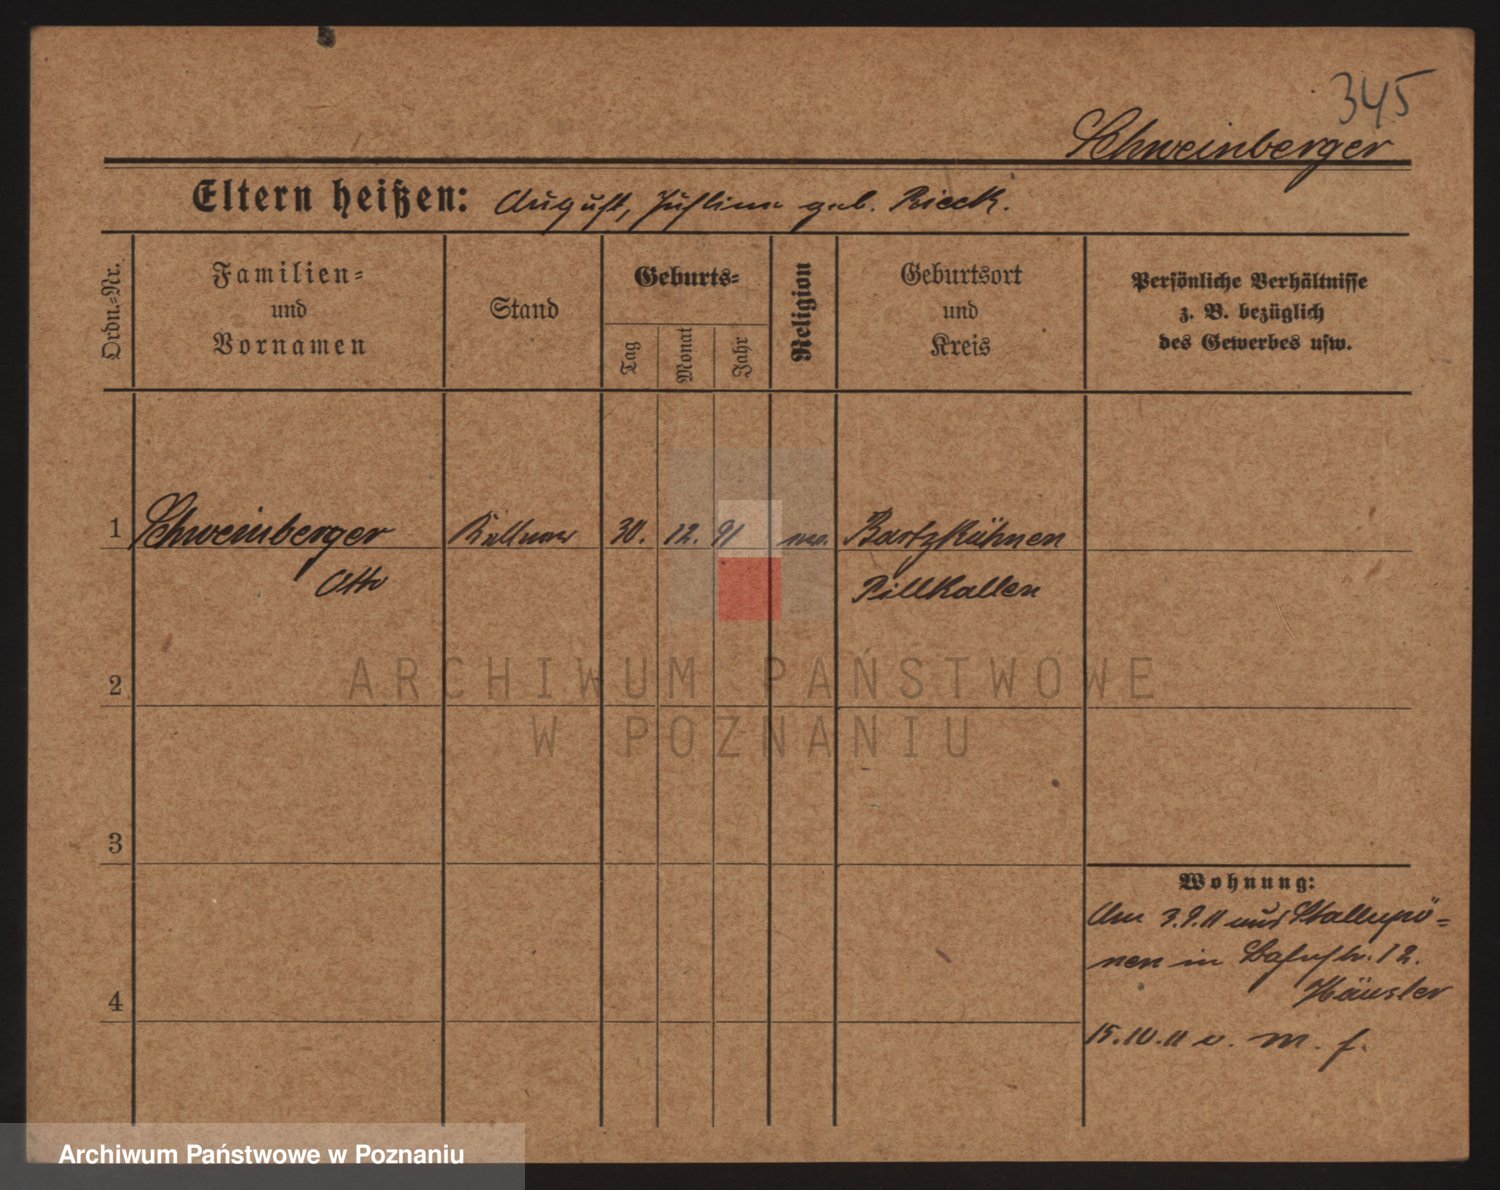 345
Schweinberger
Eltern heißen: August, Justine geb. Rieck.
Ordn.-Nr.
Familien-
und
Vornamen
Stand
Geburts-
Tag
Monat
Jahr
Religion
Geburtsort
und
Kreis
Persönliche Verhältnisse
z. B. bezüglich
des Gewerbes usw.
1 Schweinberger Kellner 30. 12. 91 ev. Bartzkühnen
Otto Pillkallen
2
ARCHIWUM PAŃSTWOWE
W POZNANIU
3
Wohnung:
Am 3.9.11 aus Stallupö-
nen in Bahnstr. 12.
4 Häusler
15.10.11 v. m. f.
Archiwum Państwowe w Poznaniu